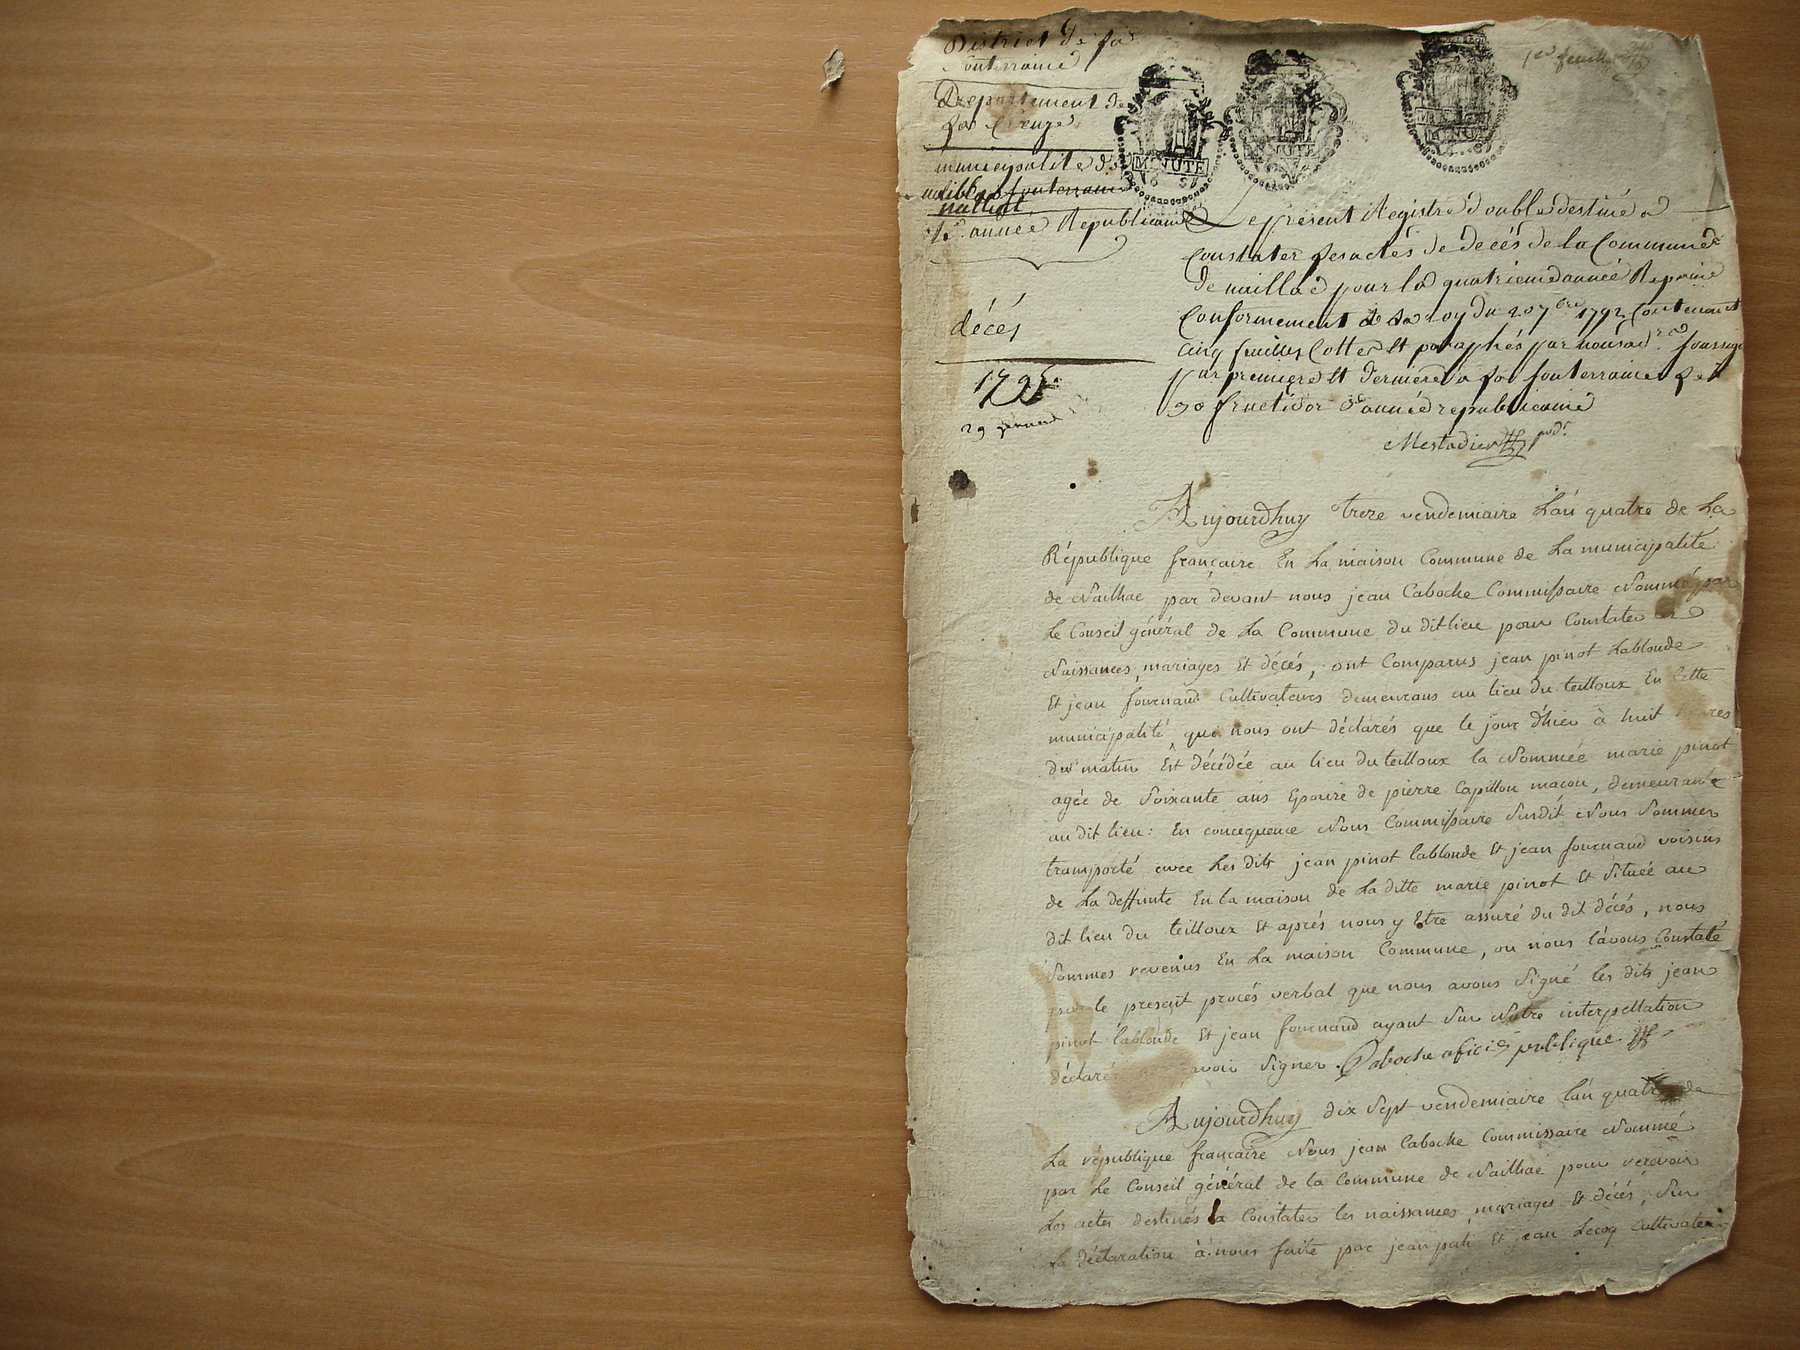 District de la
Souterraine
Departement de
la Creuze
municipalité de
la Souterraine
naillat
4e année Republicaine
décés
1795
29
1er feuillet
MINUTE
MINUTE
MINUTE
Le present Registre double destiné a
Constater les actes de décés de la Commune
de naillac pour la quatrieme année Repaine
Conformement a la loy du 20 7bre 1792 Contenant
cinq feuilles Cottes et paraphés par nous
par premiere et derniere a la Souterraine le
30 fructidor 3e année republicaine
Mestadier
Aujourdhuy treze vendemiaire Lán quatre de La
République françaire En La maison Commune de La municipalité
de Nailhac par devant nous jean Caboche Commissaire Nommé par
Le Conseil général de La Commune du dit lieu pour Constater les
Naissances, mariages Et décés, ont Comparus jean pinot Lablonde
Et jean fournaud Cultivateurs demeurans au lieu du teilloux En Cette
municipalité qui nous ont déclarés que le jour d'hier à huit heures
du matin Est décédée au lieu du teilloux la Nommée marie pinot
agée de Soixante ans Epouze de pierre Capillon macon, demeurante
au dit lieu: En concequence Nous Commissaire Susdit Nous Sommes
transporté avec Les dits jean pinot lablonde Et jean fournaud voisins
de La deffunte En La maison de La ditte marie pinot Et Située au
dit lieu du teilloux Et aprés nous y Etre assuré du dit décés, nous
Sommes revenus En La maison Commune, ou nous l'avons Constaté
par le present procés verbal que nous avons Signé les dits jean
pinot lablonde Et jean fournaud ayant Sur Notre interpellation
déclaré avoir Signer. Caboche oficié publique
Aujourdhuy dix Sept vendemiaire lán quatre de
La république francaire Nous jean Caboche Commissaire Nommé
par Le Conseil général de la Commune de Nailhac pour recevoir
Les actes destinés a Constater les naissances, mariages Et décés, Sur
La déclaration à nous faite par jean Et jean Lecoq Cultivateurs